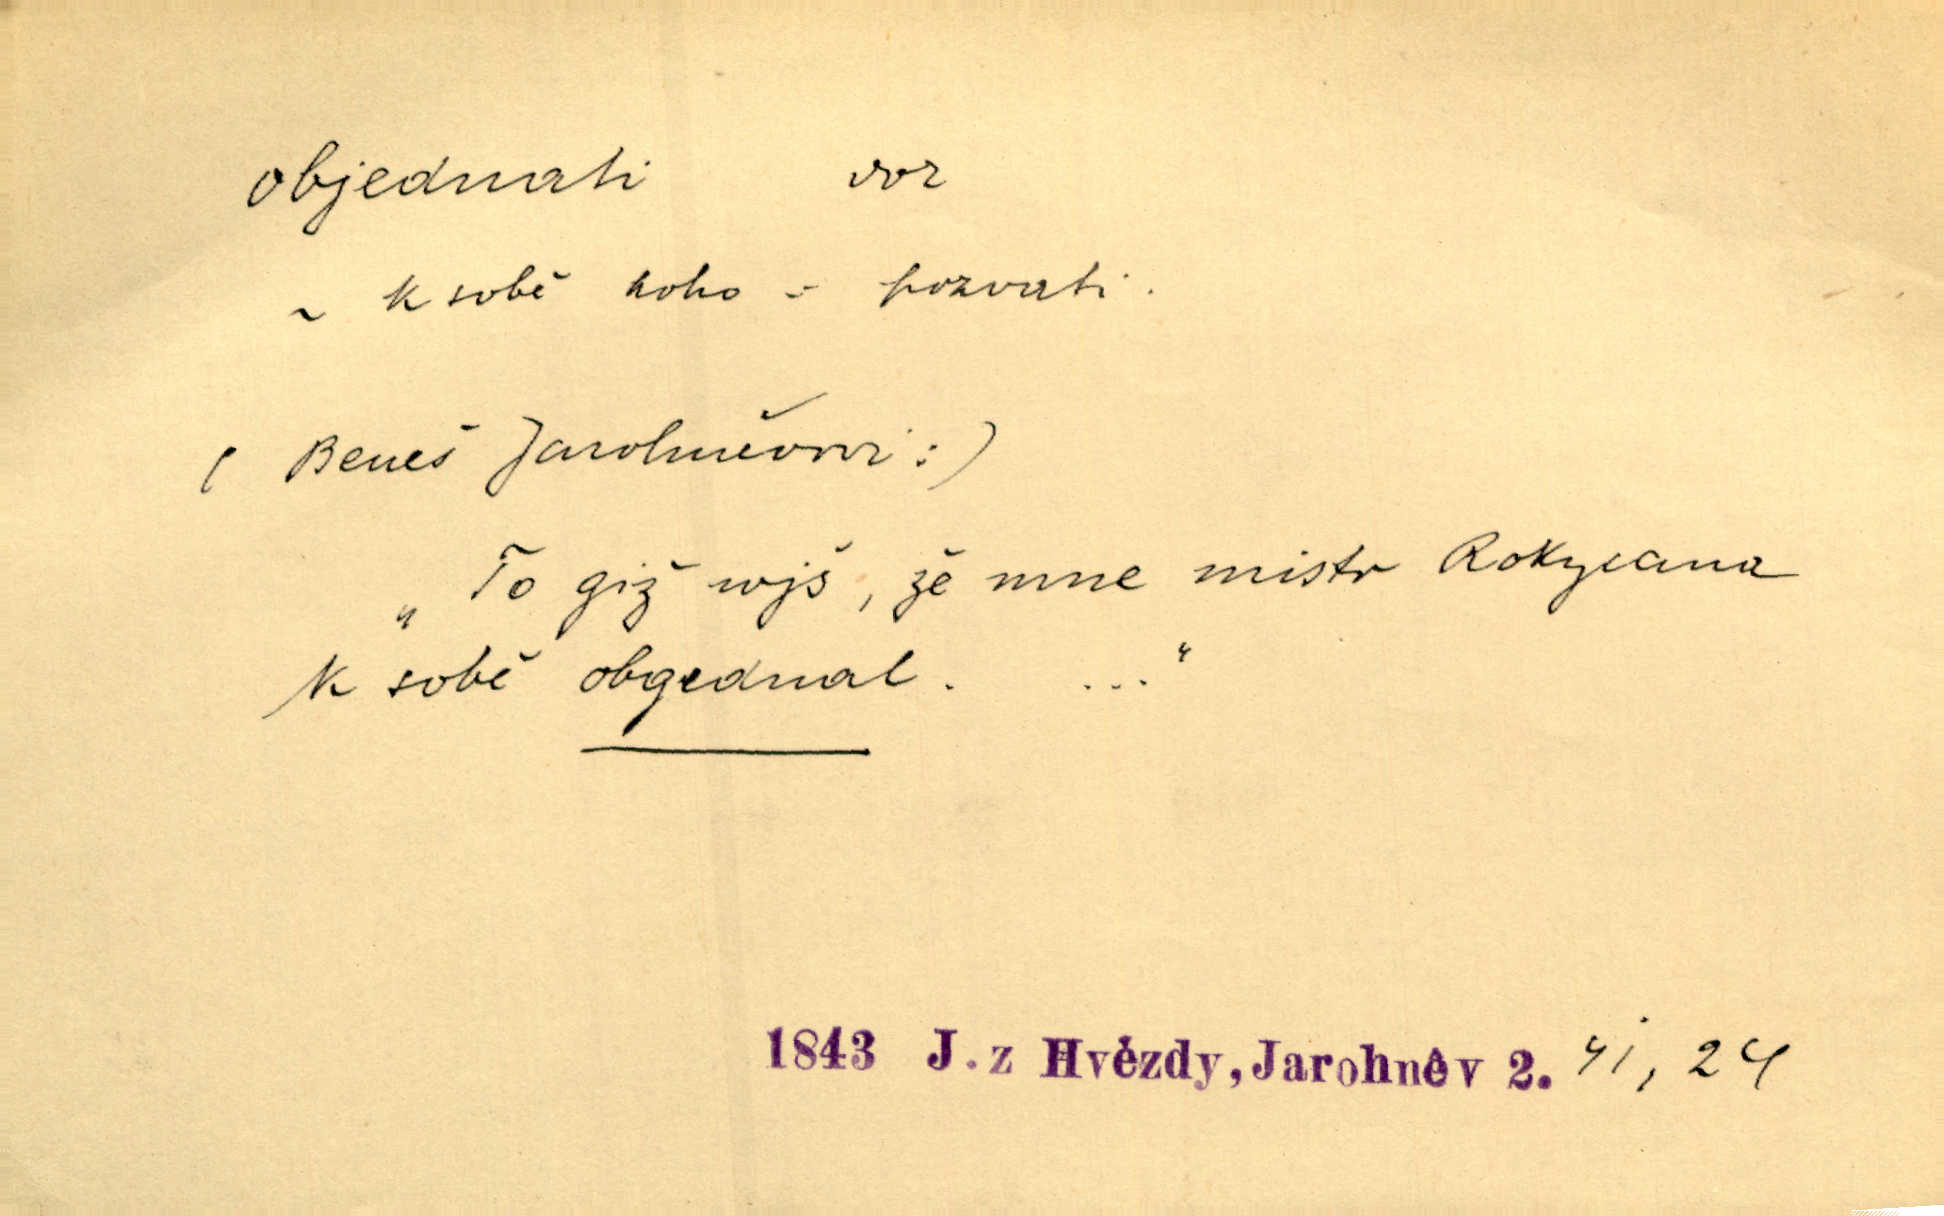 objednati dok
~ k sobě koho = pozvati.
( Beneš Jarohněvovi :)
„To giž wjš, že mne mistr Rokycana
k sobě obgednal. ..."
1843 J. z Hvězdy, Jarohněv 2. 41, 24